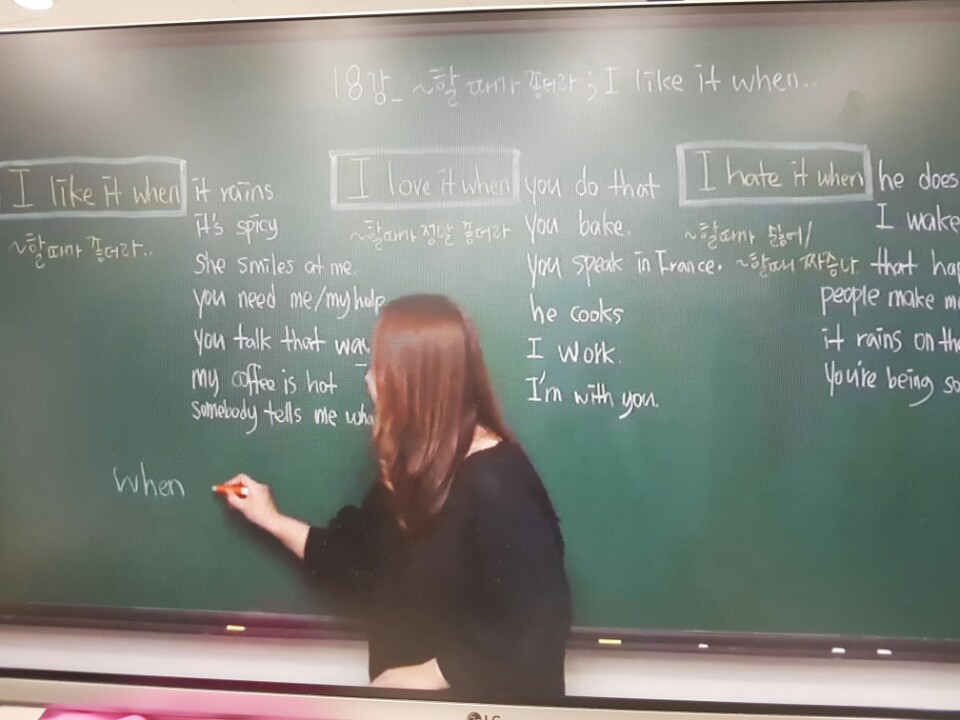 18강_ ~할 때가 좋더라 ; I like it when..
I like it when
~할때가 좋더라..
it rains
it's spicy
she smiles at me.
you need me/my help
you talk that way
my coffee is hot
somebody tells me wha
I love it when
~할때가 정말 좋더라
you do that
you bake.
you speak in France.
he cooks
I work.
I'm with you.
I hate it when
~할때가 싫어/
~할때 짜증나
he does
I wake
that hap
people make me
it rains on th
You're being so
when
LG